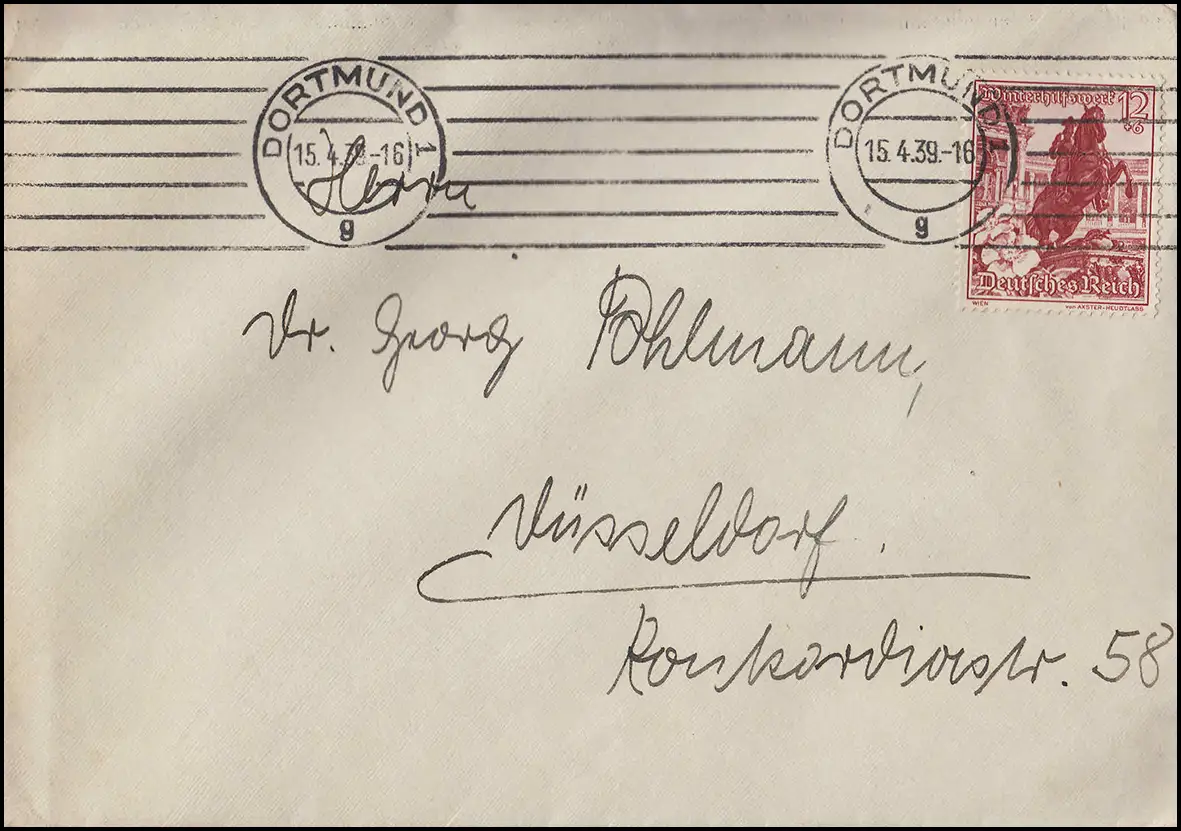 DORTMUND 1
15.4.39.-16
g
DORTMUND 1
15.4.39.-16
g
Winterhilfswerk 12
+6
Deutsches Reich
WIEN von AXSTER-HEUDTLASS
Herrn
Dr. Georg Pohlmann,
Düsseldorf.
Konkordiastr. 58